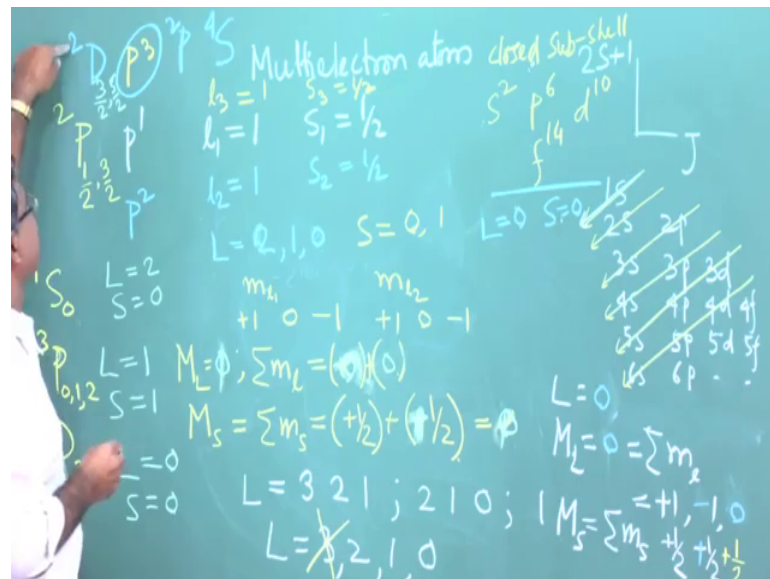 ²D p³ ²P ⁴S Multielectron atoms closed sub-shell
3/2, 5/2
l₃ = 1 S₃ = 1/2
²P p¹ l₁ = 1 S₁ = 1/2
1/2, 3/2
p² l₂ = 1 S₂ = 1/2
s² p⁶ d¹⁰
f¹⁴
L=0 S=0
2S+1
L
J
L = 2, 1, 0 S = 0, 1
¹S₀ L=2
S=0
mₗ₁ mₗ₂
+1 0 −1 +1 0 −1
³P₀,₁,₂ L=1
S=1
M_L = 0 ; Σmₗ = (0)+(0)
M_s = Σm_s = (+1/2) + (+1/2) =
=0
S=0
L = 3 2 1 ; 2 1 0 ; 1
L = 3, 2, 1, 0
1s
2s 2p
3s 3p 3d
4s 4p 4d 4f
5s 5p 5d 5f
6s 6p . .
L = 0
M_L = 0 = Σmₗ
= +1, −1, 0
M_s = Σm_s +1/2 +1/2 +1/2